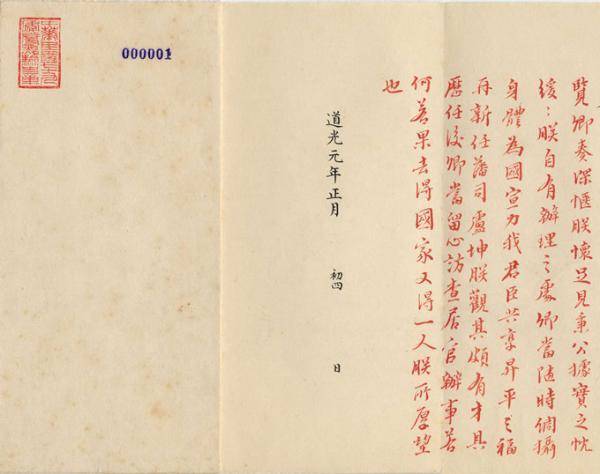 覽卿奏深愜朕懷足見秉公據實之忱
緩緩朕自有辦理之處卿當隨時調攝
身體為國宣力我君臣共享昇平之福
再新任藩司盧坤朕觀其頗有才具
歷任後卿當留心訪查居官辦事若
何若果去得國家又得一人朕所厚望
也
道光元年正月 初四 日
000001